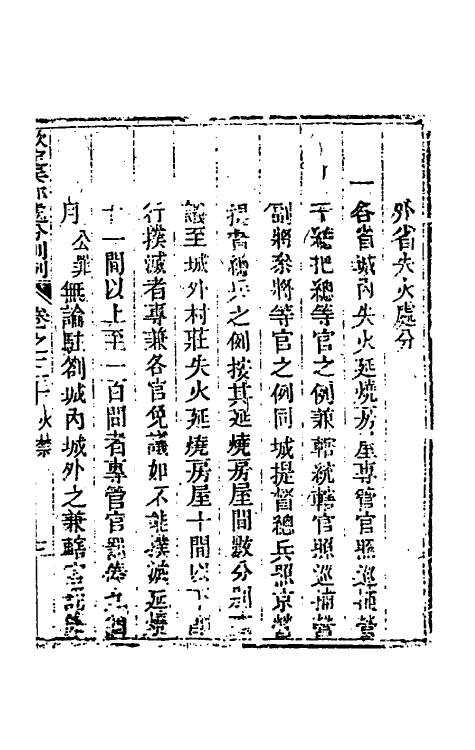 外省失火處分
一各省城內失火延燒房屋專管官照巡捕營
千總把總等官之例兼轄統轄官照巡捕營
副將叅將等官之例同城提督總兵照京營
提督總兵之例按其延燒房屋間數分別
議至城外村莊失火延燒房屋十間以下
行撲滅者專兼各官免議如不能撲滅延燒
十一間以上至一百間者專管官罰俸九個
月公罪無論駐劄城內城外之兼轄官
處分則例 卷之三十 火禁